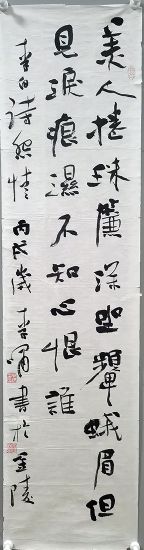 美人捲珠簾深坐顰蛾眉但
見淚痕濕不知心恨誰
李白诗怨情 丙戌歲 李 書於金陵